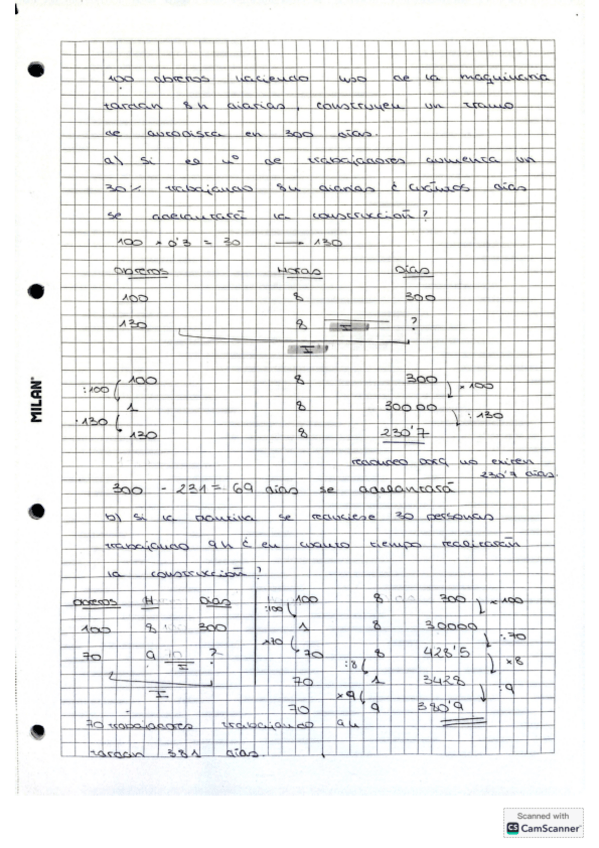 100 obreros haciendo uso de la maquinaria
tardan 8h diarias, construyen un tramo
de autopista en 300 días.
a) Si el nº de trabajadores aumenta un
30% trabajando 8h diarias ¿cuántos días
se adelantará la construcción?
100 × 0'3 = 30 → 130
obreros Horas Días
100 8 300
130 8 ?
I
I
:100 100 8 300 × 100
1 8 30000
·130 : 130
130 8 230'7
redondeo porq no existen
230'7 días.
300 - 231 = 69 días se adelantará
b) Si la plantilla se reduciese 30 personas
trabajando 9h ¿en cuánto tiempo realizarán
la construcción?
obreros H Días
100 8 300
70 9 ?
I
I
100 8 300 × 100
:100
1 8 30000
:70
70 8 428'5
:8 × 8
70 1 3428
×9 :9
70 9 380'9
70 trabajadores trabajando 9h
tardan 381 días.
MILAN
Scanned with
CS CamScanner